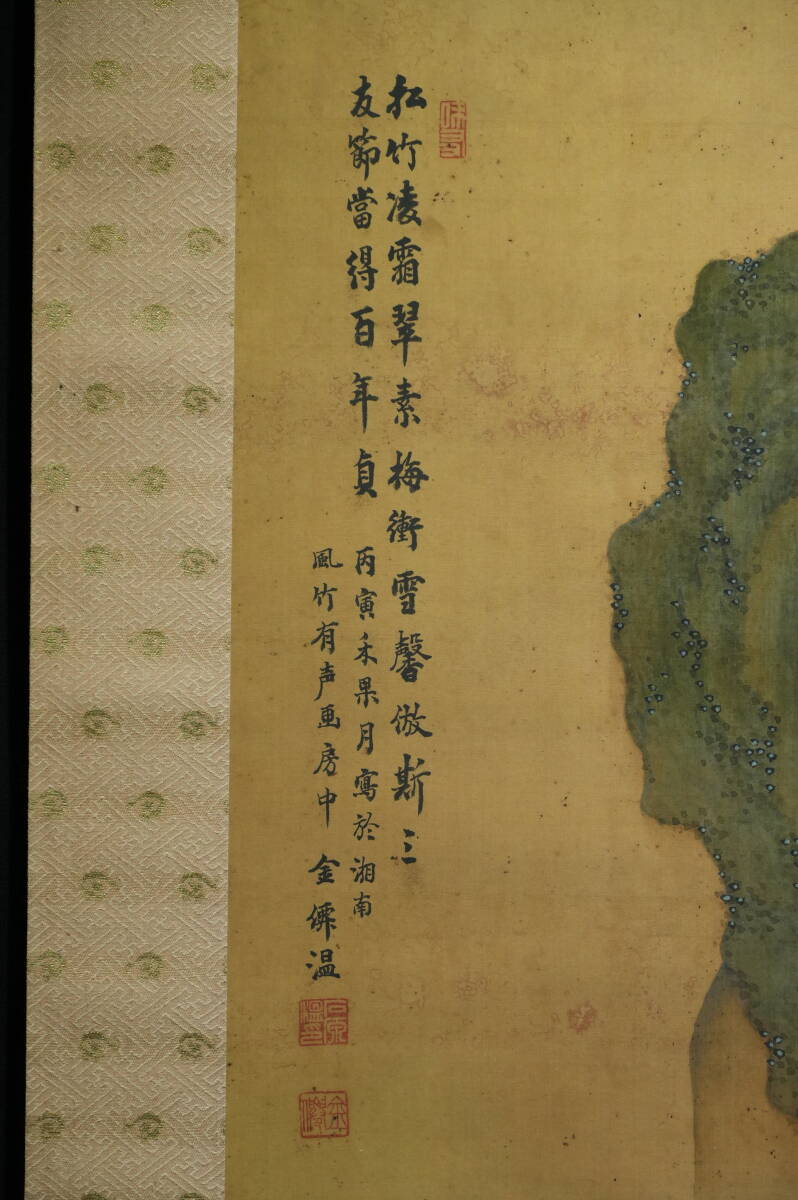 松竹凌霜翠素梅衝雪馨倣斯三
友節當得百年貞
丙寅禾果月寫於湘南
風竹有声画房中 金僊温